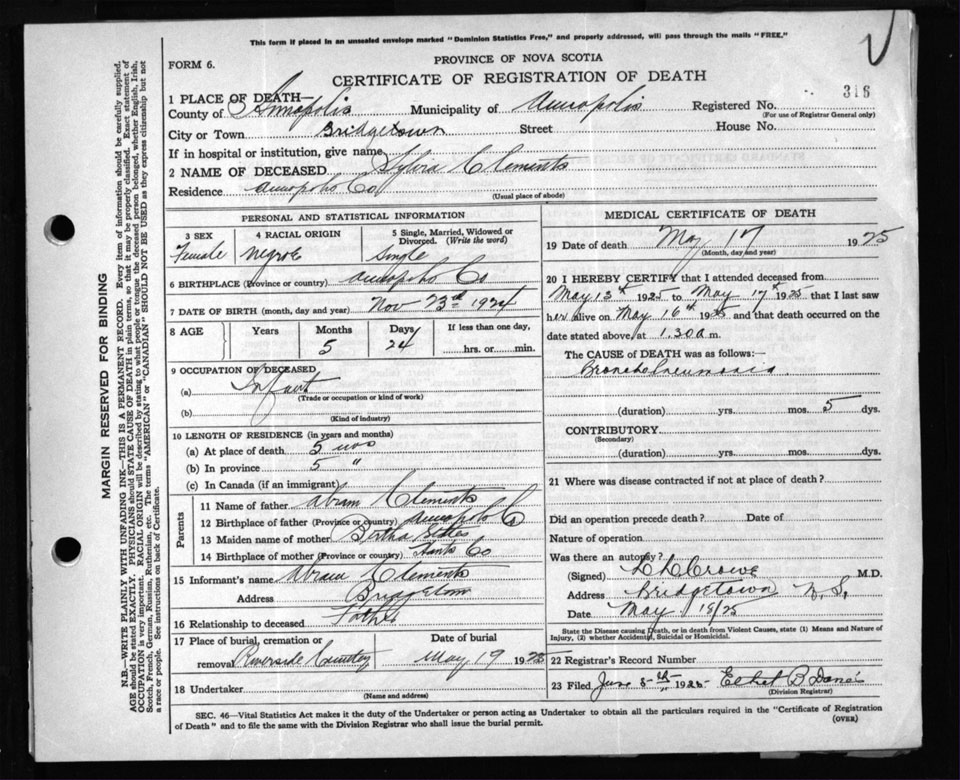 This form if placed in an unsealed envelope marked "Dominion Statistics Free," and properly addressed, will pass through the mails "FREE."
FORM 6.
PROVINCE OF NOVA SCOTIA
CERTIFICATE OF REGISTRATION OF DEATH
1 PLACE OF DEATH—
County of Annapolis Municipality of Annapolis Registered No. 316
(For use of Registrar General only)
City or Town Bridgetown Street House No.
If in hospital or institution, give name
2 NAME OF DECEASED Sylvia Clements
Residence Annapolis Co
(Usual place of abode)
PERSONAL AND STATISTICAL INFORMATION
3 SEX 4 RACIAL ORIGIN 5 Single, Married, Widowed or
Divorced. (Write the word)
Female Negroe Single
6 BIRTHPLACE (Province or country) Annapolis Co
7 DATE OF BIRTH (month, day and year) Nov 23rd 1924
8 AGE Years Months Days If less than one day,
5 24 hrs. or min.
9 OCCUPATION OF DECEASED
(a) Infant
(Trade or occupation or kind of work)
(b)
(Kind of industry)
10 LENGTH OF RESIDENCE (in years and months)
(a) At place of death 5 mos
(b) In province 5 "
(c) In Canada (if an immigrant)
Parents
11 Name of father Abram Clements
12 Birthplace of father (Province or country) Annapolis Co
13 Maiden name of mother Bertha
14 Birthplace of mother (Province or country) Hants Co
15 Informant's name Abram Clements
Address Bridgetown
16 Relationship to deceased Father
17 Place of burial, cremation or Date of burial
removal Riverside Cemetery May 19 1925
18 Undertaker
(Name and address)
MEDICAL CERTIFICATE OF DEATH
19 Date of death May 17 1925
(Month, day and year)
20 I HEREBY CERTIFY that I attended deceased from
May 13th 1925 to May 17th 1925 that I last saw
her alive on May 16th 1925 and that death occurred on the
date stated above, at 1.30 a m.
The CAUSE OF DEATH was as follows:—
Broncho Pneumonia.
(duration) yrs. mos. 5 dys.
CONTRIBUTORY
(Secondary)
(duration) yrs. mos. dys.
21 Where was disease contracted if not at place of death?
Did an operation precede death? Date of
Nature of operation
Was there an autopsy?
(Signed) Crowe M.D.
Address Bridgetown N. S.
Date May 18/25
State the Disease causing Death, or in death from Violent Causes, state (1) Means and Nature of
Injury, (2) whether Accidental, Suicidal or Homicidal.
22 Registrar's Record Number
23 Filed June 5th 1925 Ethel B
(Division Registrar)
SEC. 46—Vital Statistics Act makes it the duty of the Undertaker or person acting as Undertaker to obtain all the particulars required in the "Certificate of Registration
of Death" and to file the same with the Division Registrar who shall issue the burial permit.
(OVER)
MARGIN RESERVED FOR BINDING
N.B.—WRITE PLAINLY WITH UNFADING INK—THIS IS A PERMANENT RECORD. Every item of information should be carefully supplied.
AGE should be stated EXACTLY. PHYSICIANS should STATE CAUSE OF DEATH in plain terms, so that it may be properly classified. Exact statement of
OCCUPATION is very important. RACIAL ORIGIN will be described by stating to what people or tongue the deceased person belonged, whether English, Irish,
Scotch, French, German, Russian, Ruthenian, etc. The terms "AMERICAN" or "CANADIAN" SHOULD NOT BE USED as they express citizenship but not
a race or people. See instructions on back of Certificate.